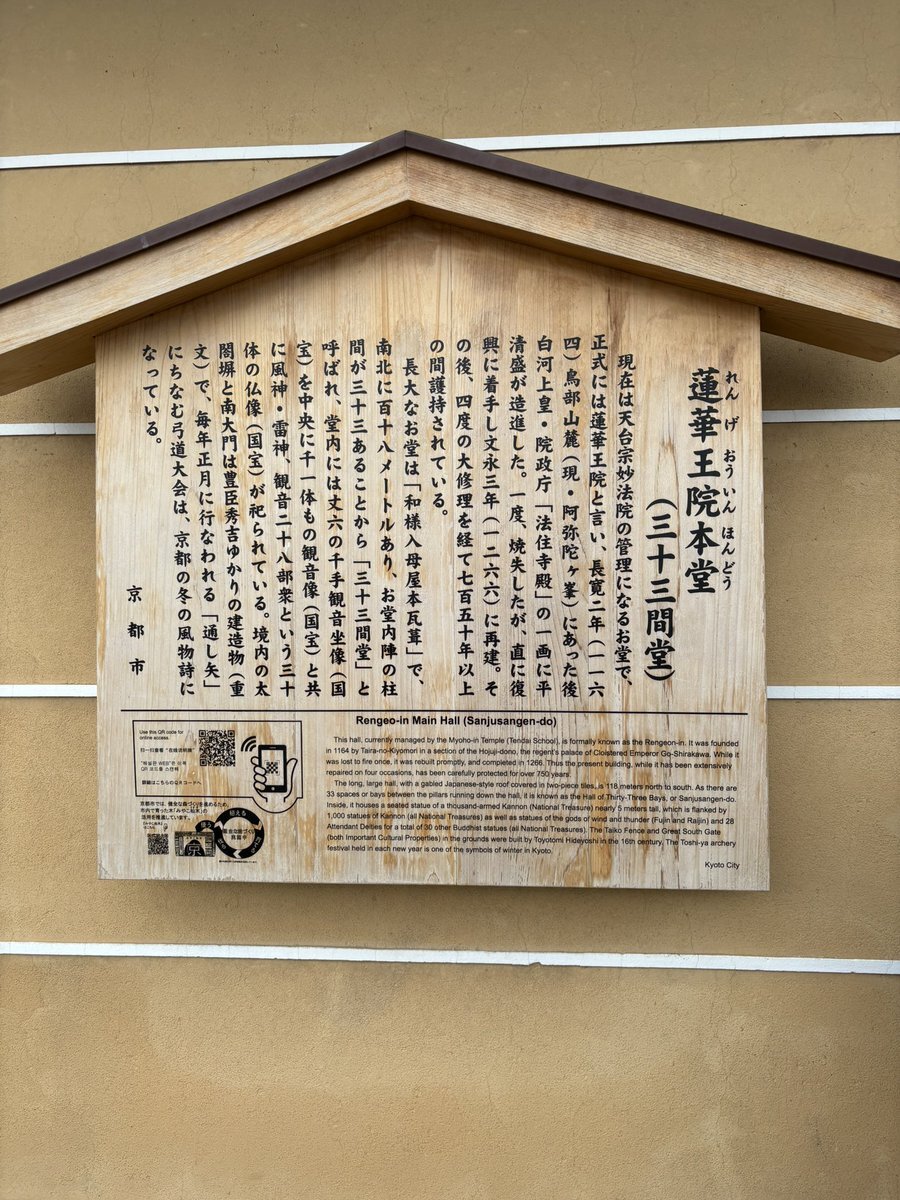 蓮華王院本堂
れんげおういんほんどう
(三十三間堂)
現在は天台宗妙法院の管理になるお堂で、
正式には蓮華王院と言い、長寛二年(一一六
四)鳥部山麓(現・阿弥陀ヶ峯)にあった後
白河上皇・院政庁「法住寺殿」の一画に平
清盛が造進した。一度、焼失したが、直に復
興に着手し文永三年(一二六六)に再建。そ
の後、四度の大修理を経て七百五十年以上
の間護持されている。
長大なお堂は「和様入母屋本瓦葺」で、
南北に百十八メートルあり、お堂内陣の柱
間が三十三あることから「三十三間堂」と
呼ばれ、堂内には丈六の千手観音坐像(国
宝)を中央に千一体もの観音像(国宝)と共
に風神・雷神、観音二十八部衆という三十
体の仏像(国宝)が祀られている。境内の太
閤塀と南大門は豊臣秀吉ゆかりの建造物(重
文)で、毎年正月に行なわれる「通し矢」
にちなむ弓道大会は、京都の冬の風物詩に
なっている。
京都市
Rengeo-in Main Hall (Sanjusangen-do)
This hall, currently managed by the Myoho-in Temple (Tendai School), is formally known as the Rengeo-in. It was founded
in 1164 by Taira-no-Kiyomori in a section of the Hojuji-dono, the regent's palace of Cloistered Emperor Go-Shirakawa. While it
was lost to fire once, it was rebuilt promptly, and completed in 1266. Thus the present building, while it has been extensively
repaired on four occasions, has been carefully protected for over 750 years.
The long, large hall, with a gabled Japanese-style roof covered in two-piece tiles, is 118 meters north to south. As there are
33 spaces or bays between the pillars running down the hall, it is known as the Hall of Thirty-Three Bays, or Sanjusangen-do.
Inside, it houses a seated statue of a thousand-armed Kannon (National Treasure) nearly 5 meters tall, which is flanked by
1,000 statues of Kannon (all National Treasures) as well as statues of the gods of wind and thunder (Fujin and Raijin) and 28
Attendant Deities for a total of 30 other Buddhist statues (all National Treasures). The Taiko Fence and Great South Gate
(both Important Cultural Properties) in the grounds were built by Toyotomi Hideyoshi in the 16th century. The Toshi-ya archery
festival held in each new year is one of the symbols of winter in Kyoto.
Kyoto City
Use this QR code for
online access.
扫一扫查看"在线说明牌"
"해설판 WEB"은 이쪽
QR 코드를 스캔해
詳細はこちらのQRコードへ
京都市では、健全な森づくりを進めるため、
市内で育った木「みやこ杣木」の
活用を推進しています。
植える